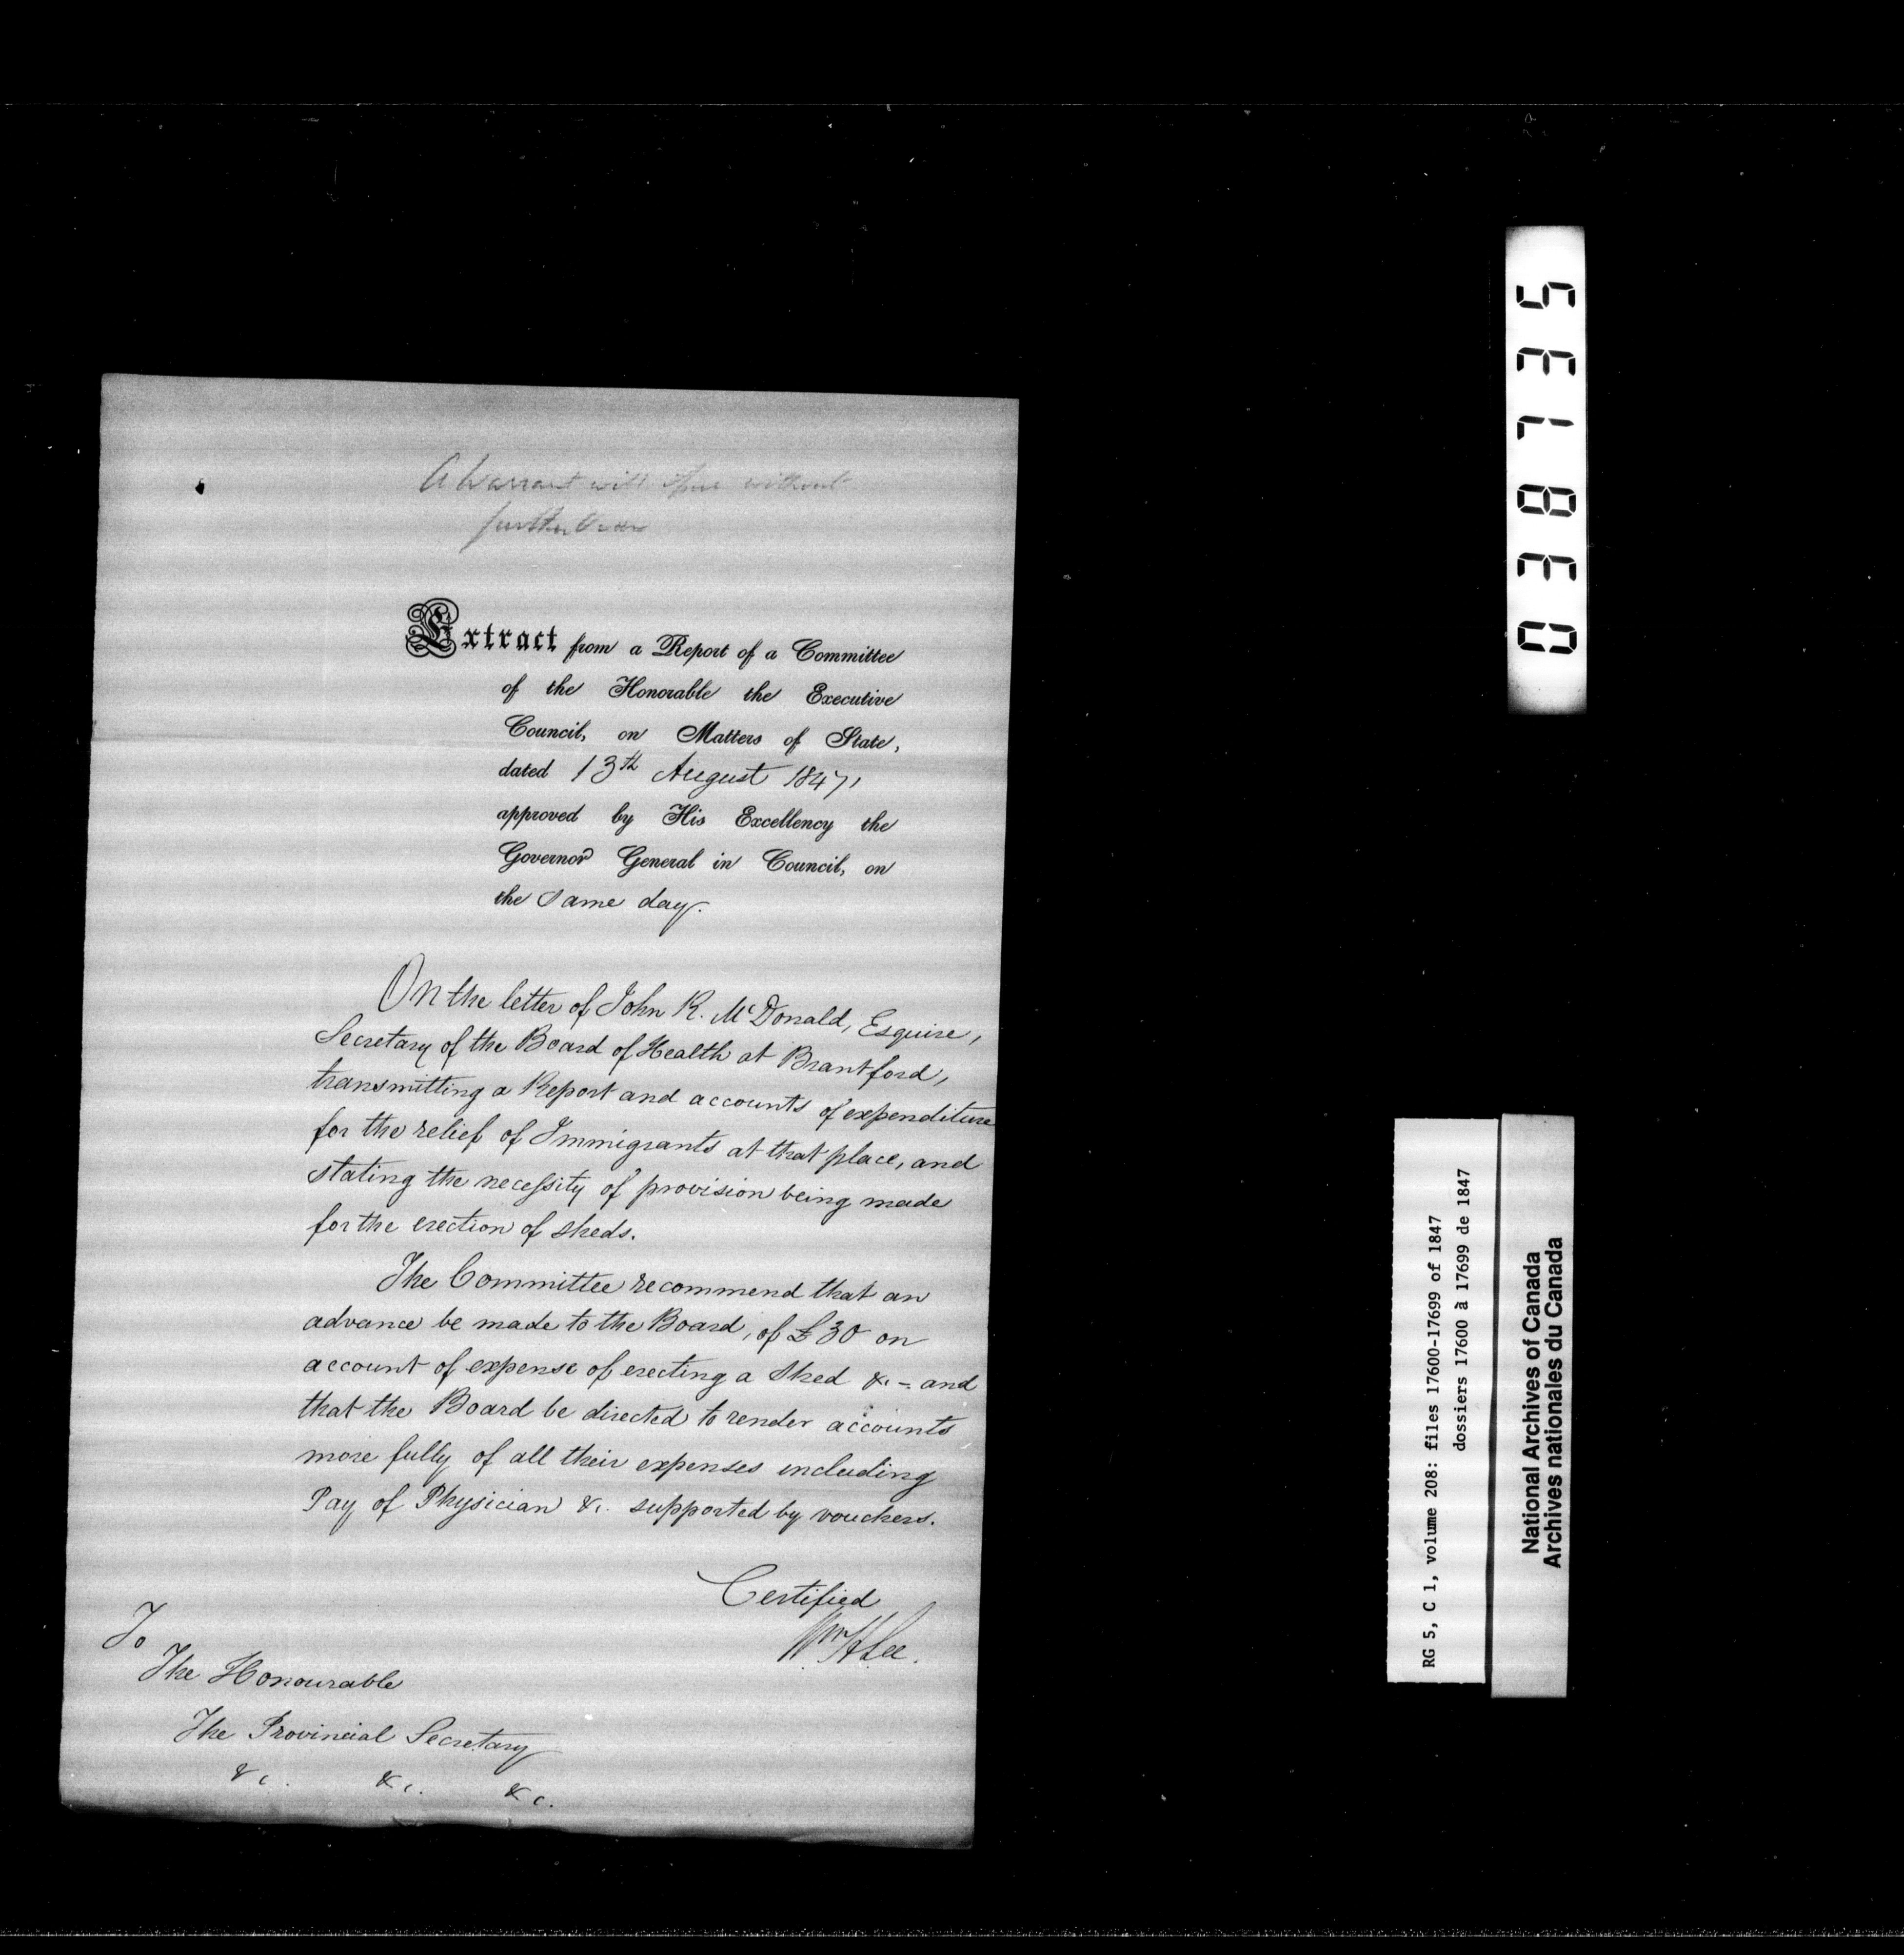 A Warrant will issue without
further
Extract from a Report of a Committee
of the Honorable the Executive
Council, on Matters of State,
dated 13th August 1847,
approved by His Excellency the
Governor General in Council, on
the same day.
On the letter of John R. McDonald, Esquire,
Secretary of the Board of Health at Brantford,
transmitting a Report and accounts of expenditure
for the relief of Immigrants at that place, and
stating the necessity of provision being made
for the erection of sheds.
The Committee recommend that an
advance be made to the Board, of £30 on
account of expense of erecting a Shed &c - and
that the Board be directed to render accounts
more fully of all their expenses including
Pay of Physician &c. supported by vouchers.
Certified
Wm H Lee.
To
The Honourable
The Provincial Secretary
&c. &c. &c.
038735
RG 5, C 1, volume 208: files 17600-17699 of 1847
dossiers 17600 à 17699 de 1847
National Archives of Canada
Archives nationales du Canada